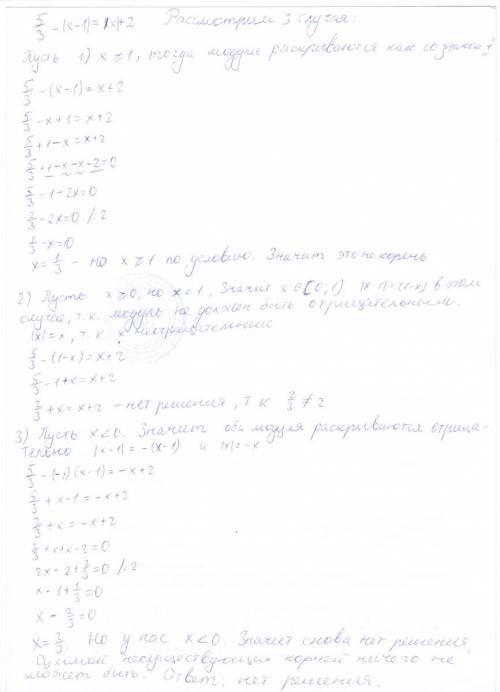 5/3 - |x-1| = |x|+2 Рассмотрим 3 случая:
Пусть 1) x ⩾ 1, тогда модули раскрываются как со знаком +
5/3 - (x-1) = x+2
5/3 - x+1 = x+2
5/3 + 1 - x = x+2
5/3 + 1 - x - x - 2 = 0
5/3 - 1 - 2x = 0
2/3 - 2x = 0 /:2
1/3 - x = 0
x = 1/3 - но x ⩾ 1 по условию. Значит это не корень
2) Пусть x ⩾ 0, но x < 1, Значит x ∈ [0; 1) |x-1| = (1-x) в этом
случае, т.к. модуль не должен быть отрицательным.
|x| = x, т.к. x неотрицательный
5/3 - (1-x) = x+2
5/3 - 1 + x = x+2
2/3 + x = x+2 - нет решения, т к 2/3 ≠ 2
3) Пусть x < 0. Значит оба модуля раскрываются отрица-
тельно |x-1| = -(x-1) и |x| = -x
5/3 - (-1)(x-1) = -x+2
5/3 + x - 1 = -x+2
2/3 + x = -x+2
2/3 + x + x - 2 = 0
2x - 2 + 2/3 = 0 /:2
x - 1 + 1/3 = 0
x - 2/3 = 0
x = 2/3. Но у нас x < 0. Значит снова нет решения
Суммой несуществующих корней ничего не
может быть. Ответ: нет решения.